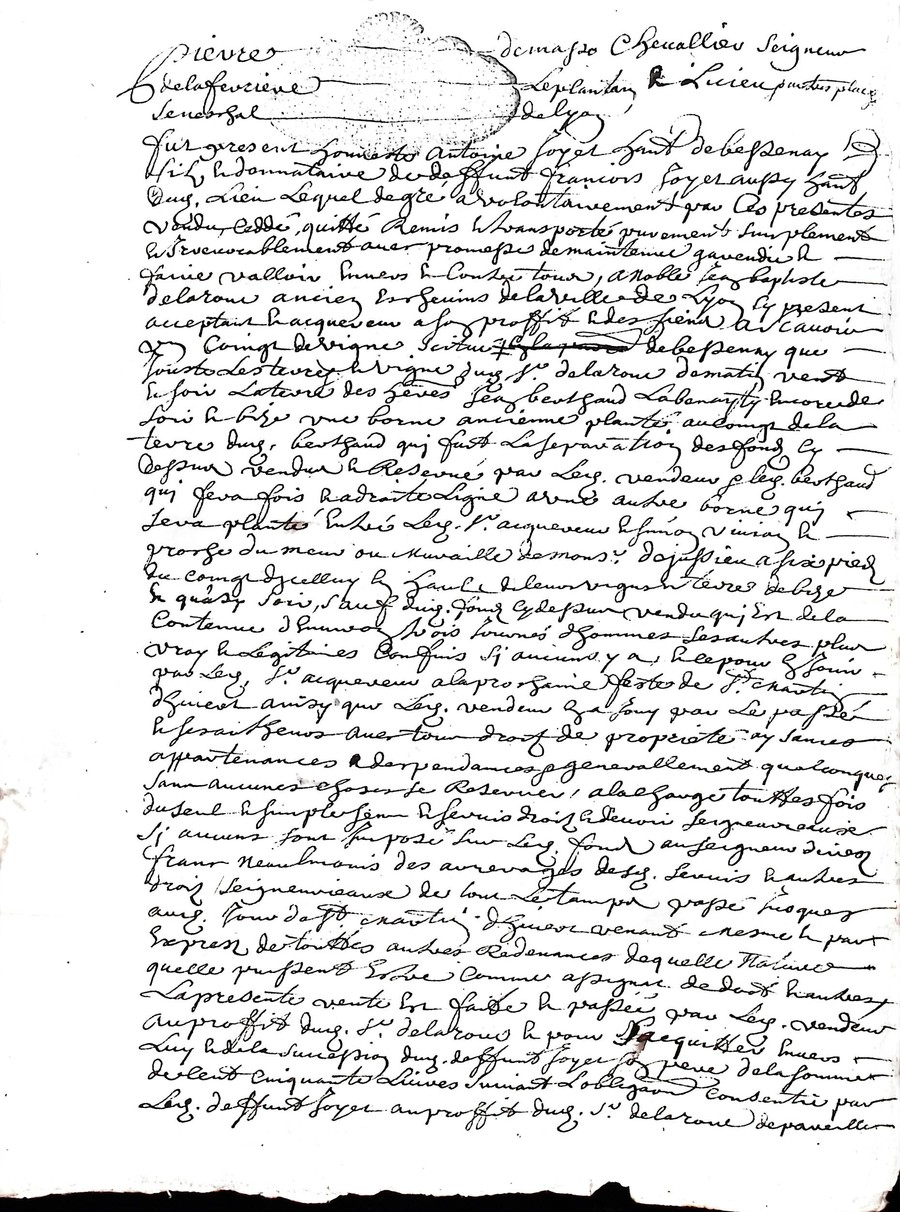 Pierre demasso Chevallier Seigneur
delaferriere Leplantin & Lucieu
Seneschal de lyon
fut present honneste Antoine Joyet habt debessenay
filz & donnataire de deffunt françois Joyet aussy habt
dud. Lieu Lequel degré a volontairement par Ces presentes
vendu, Ceddé, quitté Remis & transporté purement simplement
& Irrevocablement avec promesse demaintenir garendir &
faire valloir Envers & Contre tous, a noble Jean baptiste
delaroue ancien Eschevins delaville de Lyon Cy present
acceptant & acquereur a son proffit & des siens a scavoir
un Coing devigne scitue debessenay que
Jouste Lesterres & vigne dud. Sr. delaroue dematin vent
& soir Laterre des heres Jean berthaud Encorede
soir & bize une borne ancienne planté aucoing dela
terre dud. berthaud qui fait Laseparation desfondz Cy
dessus vendu & Reservé par Led. vendeur & led. berthaud
qui sera fois & adroite Ligne avec autre borne qui
sera planté Entre Led. Sr. acquereur &
proche du meur ou Muraille demonsr. dejussieu a six pieds
du coing dicelluy terre debize
& soir, sauf dud. fondz Cydessus vendu qui Est dela
Contenue dhenviron trois Journés dhommes sesautres plus
vray & Legitimes Confins si aucuns y a, & cepour En Jouir
par Led. Sr. acquereur alaprochaine feste de St. martin
dhivert ainsy que Led. vendeur En a Jouy par Le passé
avectous droitz de proprieté aysances
appartenances & despendances & generallement quelconques
sans aucunes choses se Reserver, alacharge touttesfois
duseul & simple & servis droitz & devoir seigneuriaux
si aucuns sont Imposé sur Led. fond au seigneur direct
franc neaulmoins des arrerages desd. servis & autres
droitz seigneuriaux de tout Letemps passé Jusques
aud. Jour dest martin dhivert venant mesme &
Exprez detouttes autres Redevances dequelle Nature
quelle puissent Estre Comme de dost & autres,
Lapresente vente Est faitte & passée par Led. vendeur
auproffit dud. Sr. delaroue & pour Sacquitter Envers
Luy & dela succession dud. deffunt Joyet son pere delasomme
decent Cinquante Livres suivant Lobligaon Consentie par
Led. deffunt Joyet auproffit dud. Sr. delaroue depareille